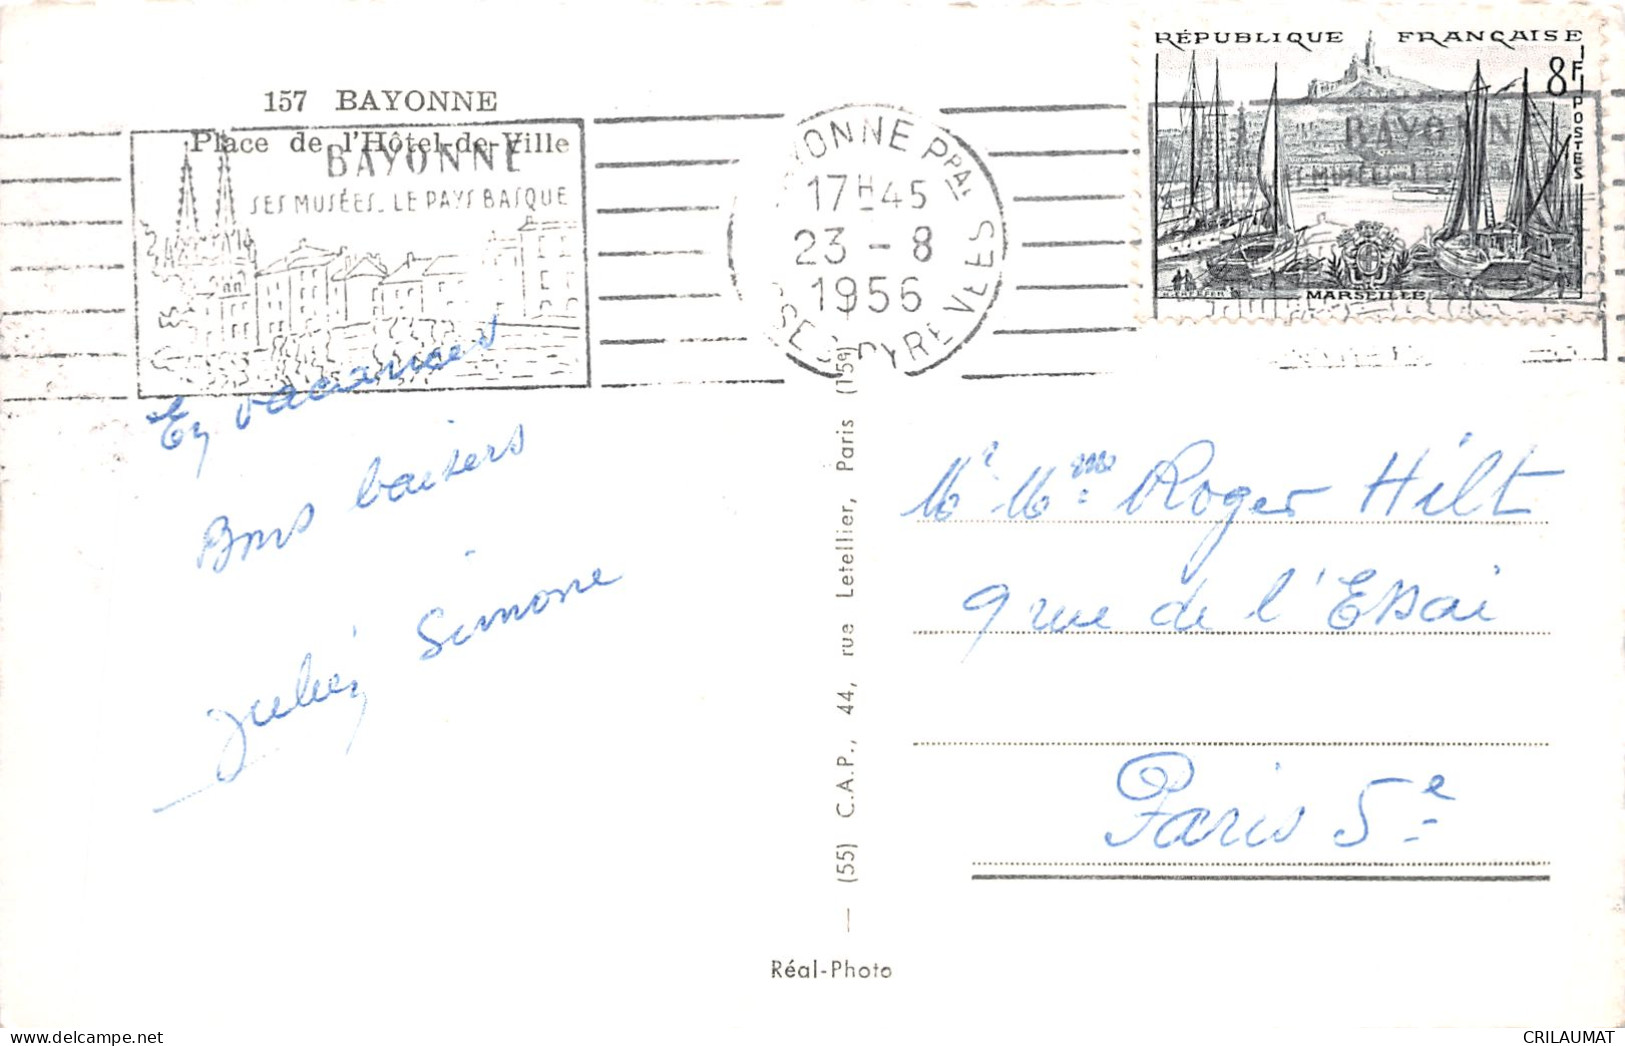 157 BAYONNE
Place de l'Hôtel-de-Ville
BAYONNE
SES MUSÉES. LE PAYS BASQUE
YONNE Pᴾᴬᴸ
17ᴴ45
23 - 8
1956
SES PYRENÉES
RÉPUBLIQUE FRANÇAISE
8F
POSTES
BAYONN
MARSEILLE
En vacances
Bons baisers
Julien Simone
(55) C.A.P., 44, rue Letellier, Paris (15e)
Mr Mme Roger Hilt
9 rue de l'Essai
Paris 5e
Réal-Photo
CRILAUMAT